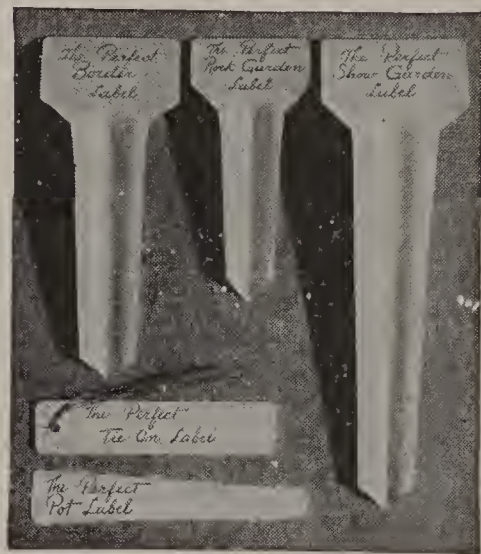 The Perfect
Border
Label
The Perfect
Rock Garden
Label
The "Perfect"
Show Garden
Label
The "Perfect"
Tie On Label
The "Perfect
Pot Label